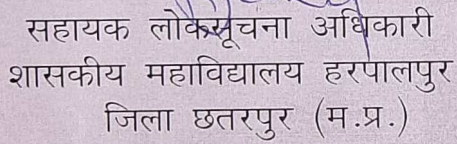 सहायक लोकसूचना अधिकारी
शासकीय महाविद्यालय हरपालपुर
जिला छतरपुर (म.प्र.)